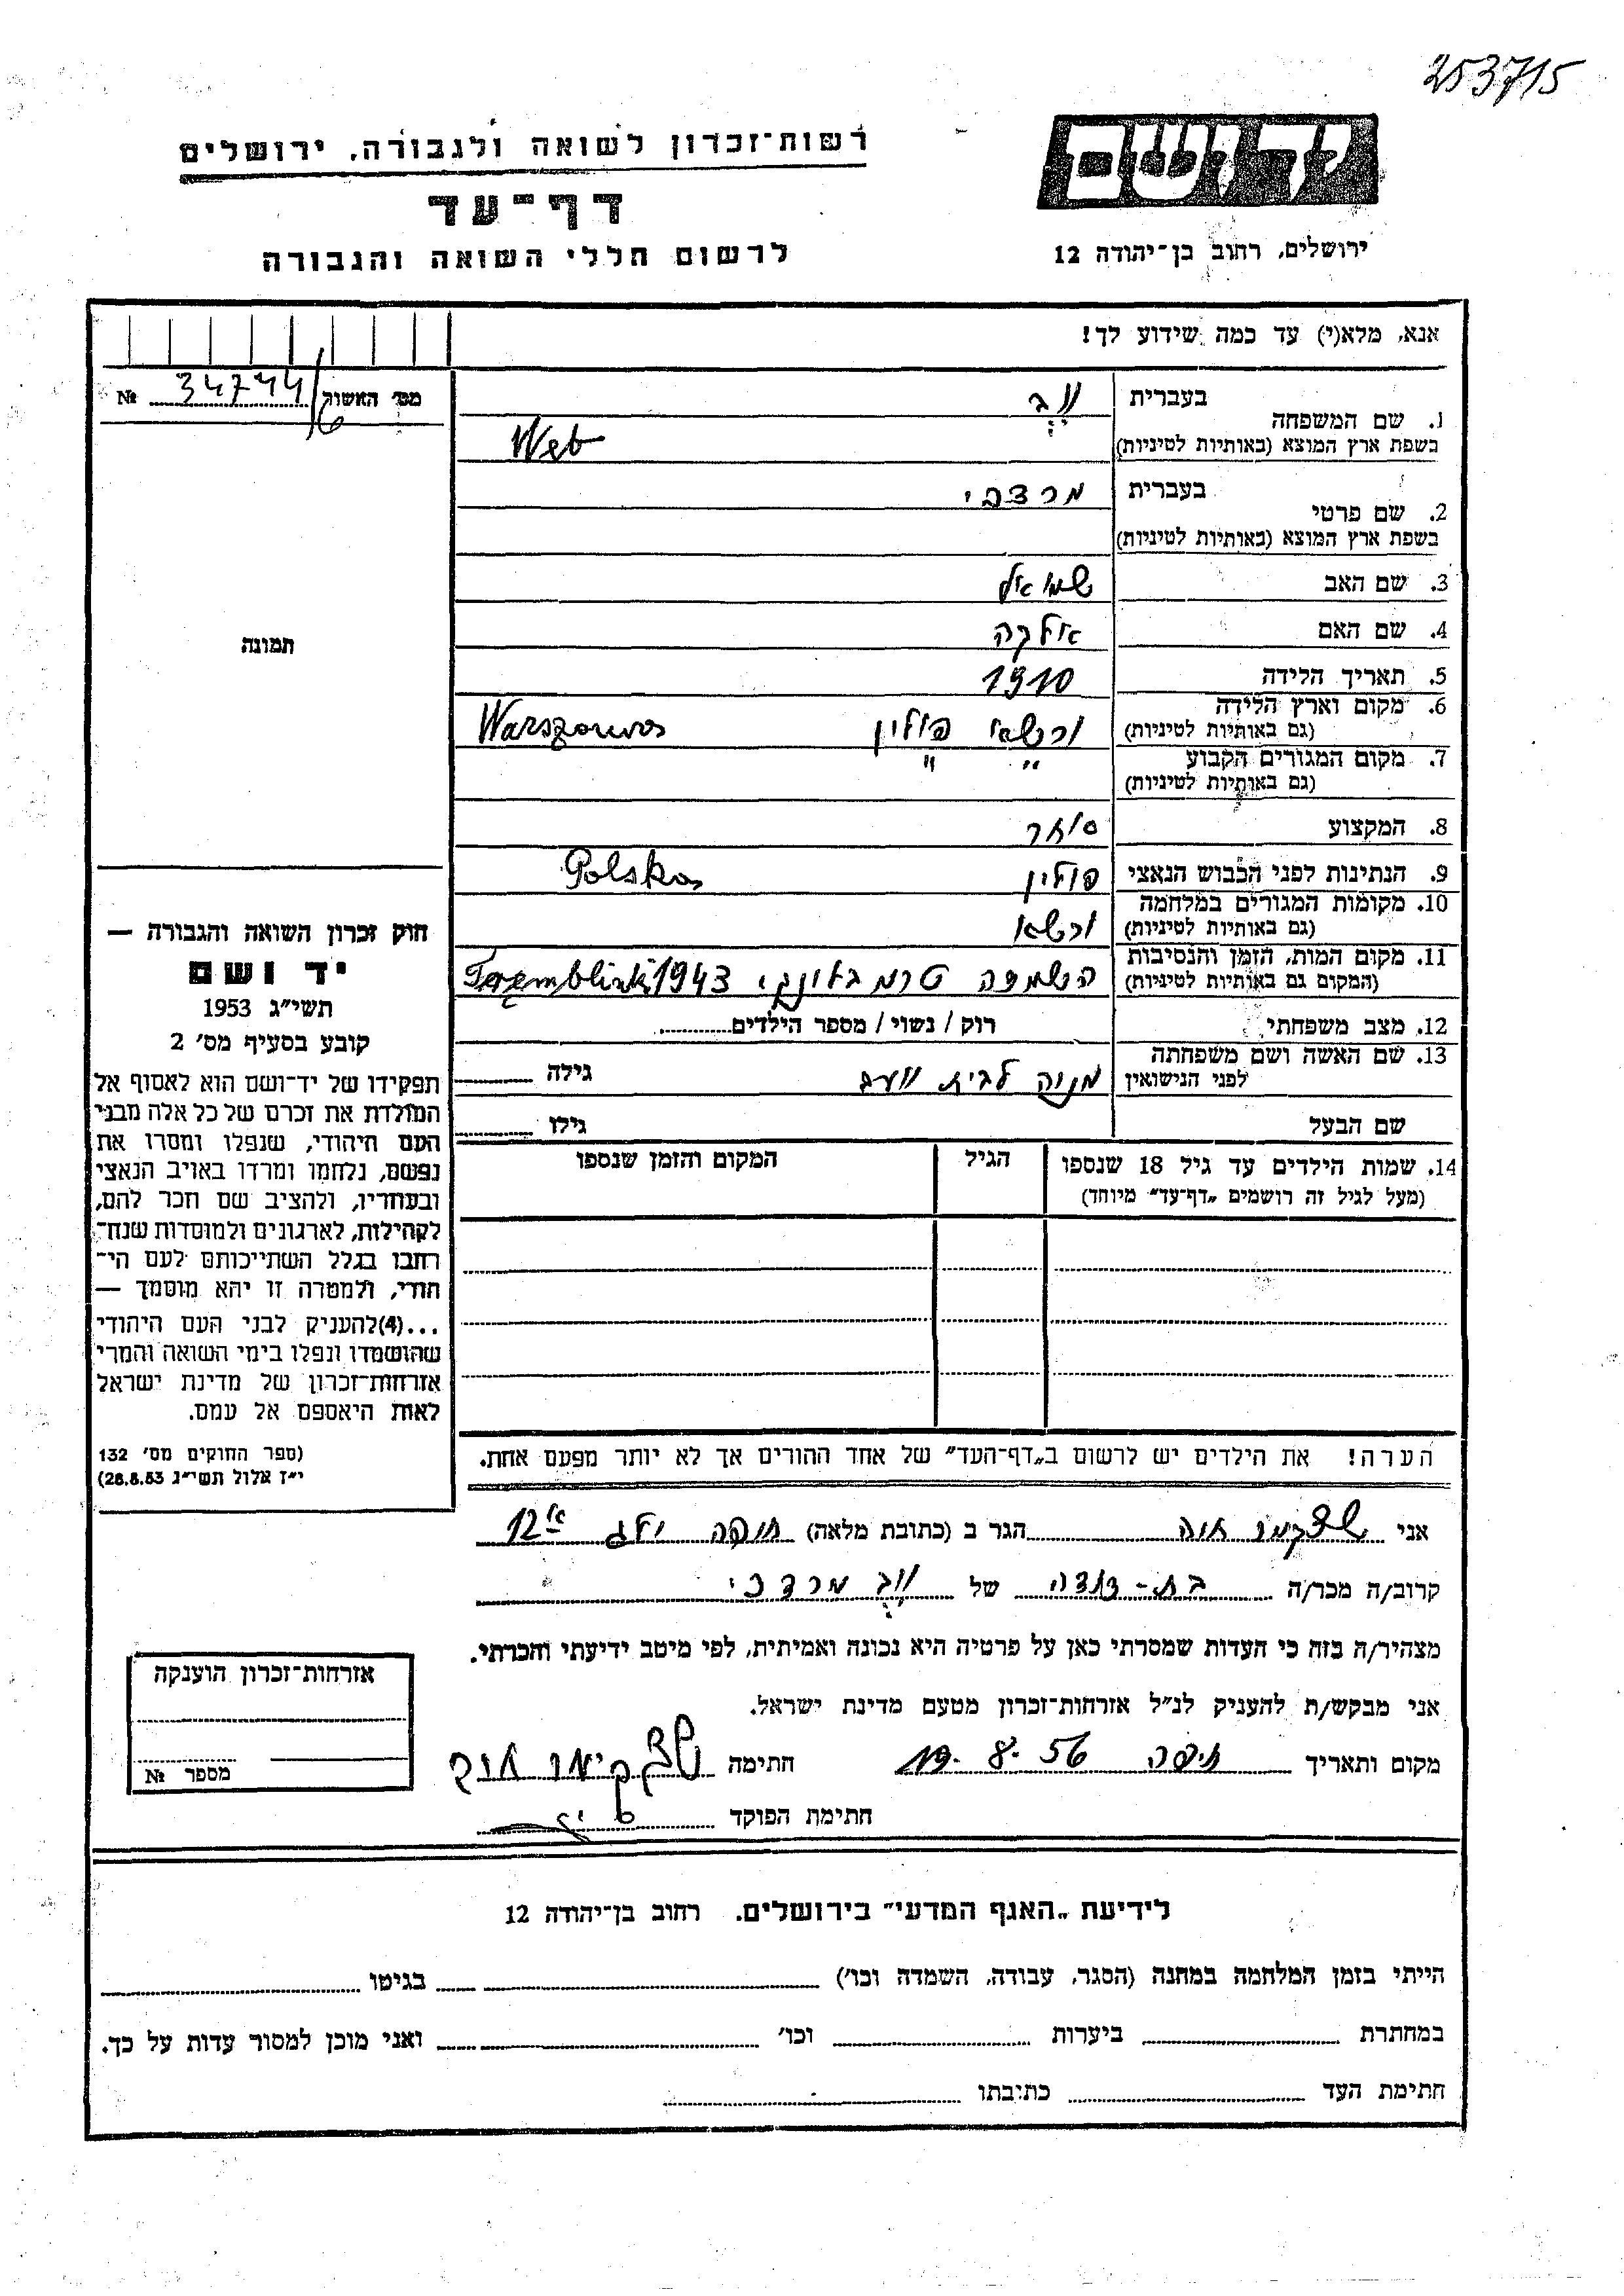 253715
יד ושם
רשות־זכרון לשואה ולגבורה, ירושלים
דף־עד
לרשום חללי השואה והגבורה
ירושלים, רחוב בן־יהודה 12
אנא, מלא(י) עד כמה שידוע לך!
מס׳ האשור 34744/6 №
1. שם המשפחה
בעברית ווב
בשפת ארץ המוצא (באותיות לטיניות) Web
2. שם פרטי
בעברית מרדכי
בשפת ארץ המוצא (באותיות לטיניות)
3. שם האב שמואל
4. שם האם
5. תאריך הלידה 1910
6. מקום וארץ הלידה (גם באותיות לטיניות) ורשא פולין Warszawa
7. מקום המגורים הקבוע (גם באותיות לטיניות) " "
8. המקצוע סוחר
9. הנתינות לפני הכבוש הנאצי פולין Polska
10. מקומות המגורים במלחמה (גם באותיות לטיניות) ורשא
11. מקום המות, הזמן והנסיבות (המקום גם באותיות לטיניות) השמדה 1943
12. מצב משפחתי רוק / נשוי / מספר הילדים
13. שם האשה ושם משפחתה לפני הנישואין מניה לבית גילה
שם הבעל גילו
14. שמות הילדים עד גיל 18 שנספו (מעל לגיל זה רושמים „דף־עד” מיוחד)
הגיל
המקום והזמן שנספו
תמונה
חוק זכרון השואה והגבורה —
יד ושם
תשי״ג 1953
קובע בסעיף מס׳ 2
תפקידו של יד־ושם הוא לאסוף אל
המולדת את זכרם של כל אלה מבני
העם היהודי, שנפלו ומסרו את
נפשם, נלחמו ומרדו באויב הנאצי
ובעוזריו, ולהציב שם וזכר להם,
לקהילות, לארגונים ולמוסדות שנח־
רבו בגלל השתייכותם לעם הי־
הודי, ולמטרה זו יהא מוסמך —
...(4)להעניק לבני העם היהודי
שהושמדו ונפלו בימי השואה והמרי
אזרחות־זכרון של מדינת ישראל
לאות היאספם אל עמם.
(ספר החוקים מס׳ 132
י״ז אלול תשי״ג 28.8.53)
הערה! את הילדים יש לרשום ב„דף־העד” של אחד ההורים אך לא יותר מפעם אחת.
אני חוה הגר ב (כתובת מלאה) חיפה 12
קרוב/ה מכר/ה בת-דודה של ווב מרדכי
מצהיר/ה בזה כי העדות שמסרתי כאן על פרטיה היא נכונה ואמיתית, לפי מיטב ידיעתי והכרתי.
אני מבקש/ת להעניק לנ״ל אזרחות־זכרון מטעם מדינת ישראל.
מקום ותאריך חיפה 19.8.56 חתימה
חתימת הפוקד
אזרחות־זכרון הוענקה
מספר №
לידיעת „האגף המדעי” בירושלים. רחוב בן־יהודה 12
הייתי בזמן המלחמה במחנה (הסגר, עבודה, השמדה וכו׳) בגיטו
במחתרת ביערות וכו׳ ואני מוכן למסור עדות על כך.
חתימת העד כתיבתו